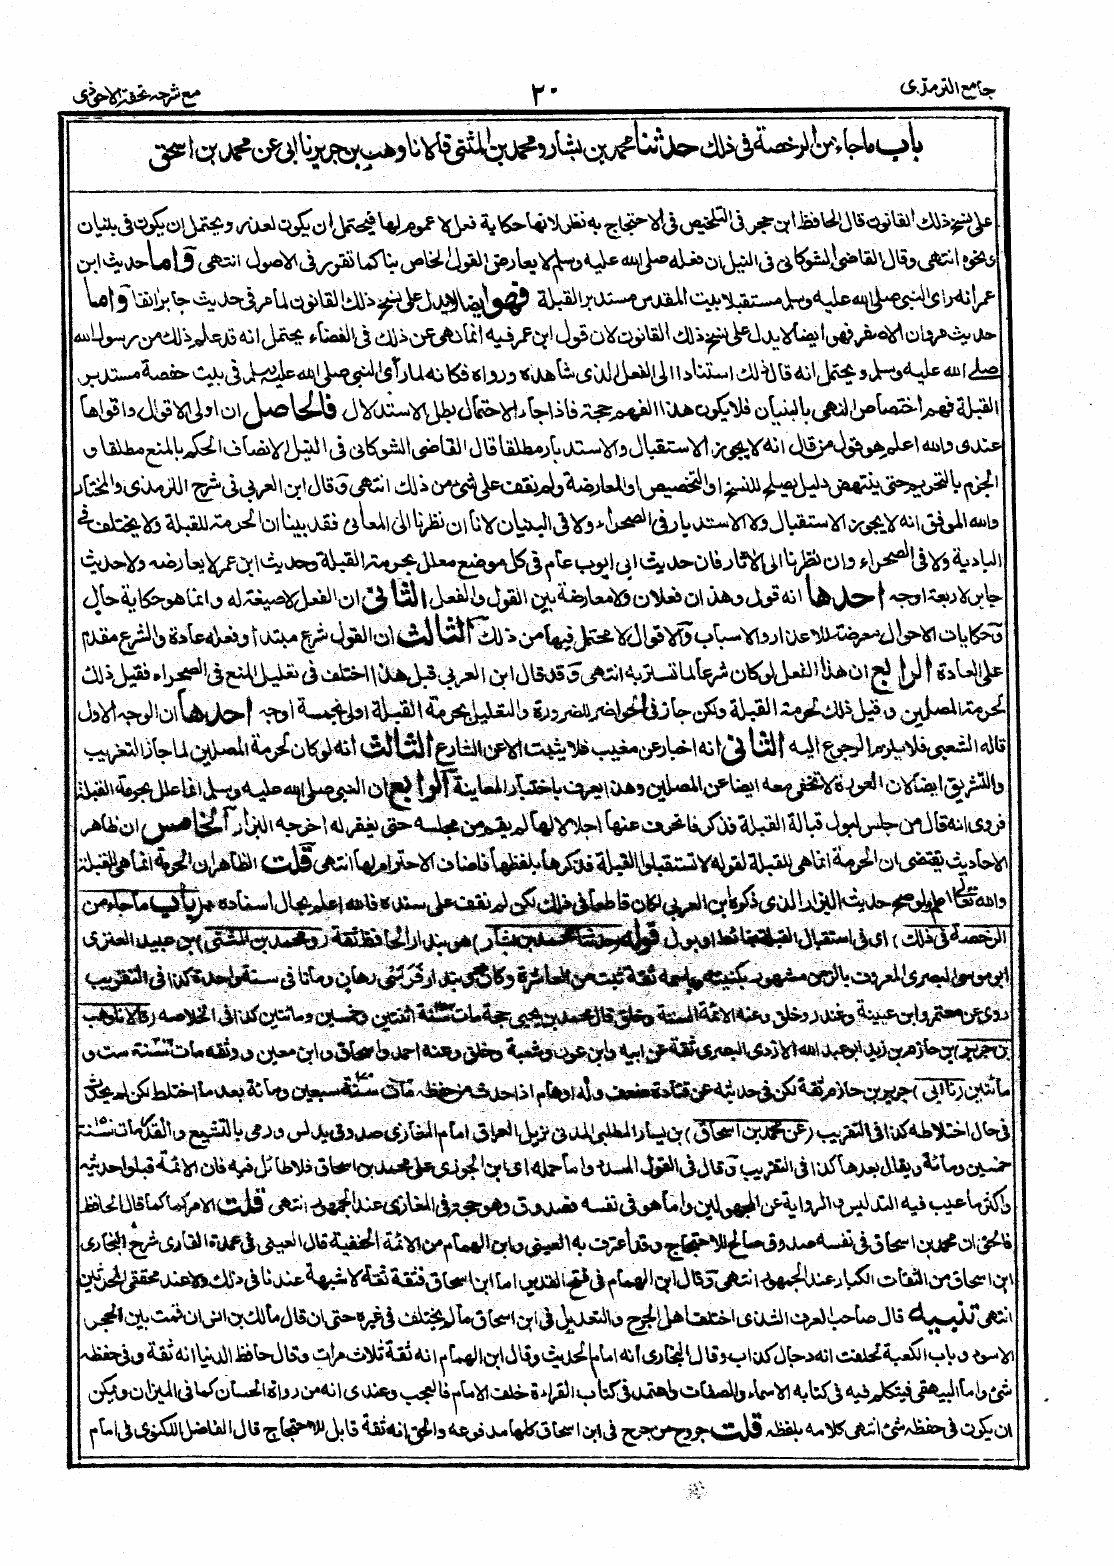 جامع الترمذی
٢٠
مع شرحہ تحفۃ الاحوذی
باب ماجاء من الرخصة فی ذلك حدثنا محمد بن بشار و محمد بن المثنی قالا نا وهب بن جریر نا ابی عن محمد بن اسحق
علی نسخ ذلك القانون قال الحافظ ابن حجر فی التلخیص فی الاحتجاج به نظر لانها حكایة فعل لا عموم لها فیحتمل ان یكون لعذر و یحتمل ان یكون فی بنیان
و نحوه انتهی وقال القاضی الشوكانی فی النیل ان فعله صلی الله علیه وسلم لا یعارض القول الخاص بنا كما تقرر فی الاصول انتهی واما حدیث ابن
عمر انه رای النبی صلی الله علیه وسلم مستقبلا بیت المقدس مستدبر القبلة فهو ایضا لا یدل علی نسخ ذلك القانون لما مر فی حدیث جابر انفا واما
حدیث مروان الاصفر فهو ایضا لا یدل علی نسخ ذلك القانون لان قول ابن عمر فیه انما نهی عن ذلك فی الفضاء یحتمل انه قد علم ذلك من رسول الله
صلے الله علیه وسلم و یحتمل انه قال ذلك استنادا الی الفعل الذی شاهده ورواه فكانه لما رأی النبی صلی الله علیه وسلم فی بیت حفصة مستدبر
القبلة فهم اختصاص النهی بالبنیان فلا یكون هذا الفهم حجة فاذا جاء الاحتمال بطل الاستدلال فالحاصل ان اولی الاقوال واقواها
عندی والله اعلم هو قول من قال انه لا یجوز الاستقبال والاستدبار مطلقا قال القاضی الشوكانی فی النیل الانصاف الحكم بالمنع مطلقا و
الجزم بالتحریم حتی ینتهض دلیل یصلح للنسخ او التخصیص او المعارضة ولم نقف علی شیء من ذلك انتهی وقال ابن العربی فی شرح الترمذی والمختار
والله الموفق انه لا یجوز الاستقبال ولا الاستدبار فی الصحراء ولا فی البنیان لانا ان نظرنا الی المعانی فقد بینا ان الحرمة للقبلة ولا یختلف فے
البادیة ولا فی الصحراء وان نظرنا الی الاثار فان حدیث ابی ایوب عام فی كل موضع معلل بحرمة القبلة وحدیث ابن عمر لا یعارضه ولا حدیث
جابر لاربعة اوجه احدها انه قول وهذان فعلان ولا معارضة بین القول والفعل الثانی ان الفعل لا صیغة له وانما هو حكایة حال
وحكایات الاحوال معرضة للاعذار والاسباب والاقوال لا محتمل فیها من ذلك الثالث ان القول شرع مبتدأ وفعله عادة والشرع مقدم
علی العادة الرابع ان هذا الفعل لو كان شرعا لما تستر به انتهی وقد قال ابن العربی قبل هذا اختلف فی تعلیل المنع فی الصحراء فقیل ذلك
لحرمة المصلین وقیل ذلك لحرمة القبلة ولكن جاز فی الحواضر للضرورة والتعلیل بحرمة القبلة اولی بخمسة اوجه احدها ان الوجه الاول
قاله الشعبی فلا یلزم الرجوع الیه الثانی انه اخبار عن مغیب فلا یثبت الا عن الشارع الثالث انه لو كان لحرمة المصلین لما جاز التغریب
والتشریق ایضا لان العورة لا تخفی معه ایضا عن المصلین وهذا یعرف باختبار المعاینة الرابع ان النبی صلی الله علیه وسلم انما علل بحرمة القبلة
فروی انه قال من جلس لبول قبالة القبلة فذكر فانحرف عنها اجلالا لها لم یقم من مجلسه حتی یغفر له اخرجه البزار الخامس ان ظاهر
الاحادیث یقتضی ان الحرمة انما هی للقبلة لقوله لا تستقبلوا القبلة فذكرها بلفظها فاضاف الاحترام لها انتهی قلت الظاهر ان الحرمة انما هی للقبلة
والله تعالی اعلم ولو صح حدیث البزار الذی ذكره ابن العربی لكان قاطعا فی ذلك لكن لم نقف علی سنده فالله اعلم بحال اسناده باب ماجاء من
الرخصة فی ذلك) ای فی استقبال القبلة بغائط او بول قوله (حدثنا محمد بن بشار) هو بندار الحافظ ثقة (ومحمد بن المثنی) بن عبید العنزی
ابو موسی البصری المعروف بالزمن مشهور بكنیته وباسمه ثقة ثبت من العاشرة وكان هو وبندار فرسی رهان وماتا فی سنة واحدة كذا فی التقریب
روی عن معتمر وابن عیینة وغندر وخلق وعنه الائمة الستة وخلق قال محمد بن یحیی حجة مات سنة اثنتین وخمسین ومائتین كذا فی الخلاصه (قالا نا وهب
بن جریر) بن حازم بن زید ابو عبد الله الازدی البصری ثقة عن ابیه وابن عون وشعبة وخلق وعنه احمد واسحاق وابن معین ووثقه مات سنة ست و
مائتین (نا ابی) جریر بن حازم ثقة لكن فی حدیثه عن قتادة ضعف وله اوهام اذا حدث من حفظه مات سنة سبعین ومائة بعد ما اختلط لكن لم یحدث
فی حال اختلاطه كذا فی التقریب (عن محمد بن اسحاق) بن یسار المطلبی المدنی نزیل العراق امام المغازی صدوق یدلس ورمی بالتشیع والقدر مات سنة ١٥٠
خمسین ومائة ویقال بعدها كذا فی التقریب وقال فی القول المسدد واما حمله ای ابن الجوزی علی محمد بن اسحاق فلا طائل فیه فان الائمة قبلوا حدیثه
واكثر ما عیب فیه التدلیس والروایة عن المجهولین واما هو فی نفسه فصدوق وهو حجة فی المغازی عند الجمهور انتهی قلت الامر كما قال الحافظ
فالحق ان محمد بن اسحاق فی نفسه صدوق صالح للاحتجاج وقد اعترف به العینی وابن الهمام من الائمة الحنفیة قال العینی فی عمدة القاری شرح البخاری
ابن اسحاق من الثقات الكبار عند الجمهور انتهی وقال ابن الهمام فی فتح القدیر اما ابن اسحاق فثقة ثقة لا شبهة عندنا فی ذلك ولا عند محققی المحدثین
انتهی تنبیه قال صاحب العرف الشذی اختلف اهل الجرح والتعدیل فی ابن اسحاق ما لم یختلف فی غیره حتی ان قال مالك بن انس ان قمت بین الحجر
الاسود وباب الكعبة لحلفت انه دجال كذاب وقال البخاری انه امام الحدیث وقال ابن الهمام انه ثقة ثلاث مرات وقال حافظ الدنیا انه ثقة وفی حفظه
شئ واما البیهقی فیتكلم فیه فی كتابه الاسماء والصفات واعتمد فی كتاب القراءة خلف الامام فالعجب وعندی انه من رواة الحسان كما فی المیزان ویمكن
ان یكون فی حفظه شئ انتهی كلامه بلفظه قلت جروح من جرح فی ابن اسحاق كلها مدفوعة والحق انه ثقة قابل للاحتجاج قال الفاضل اللكنوی فی امام